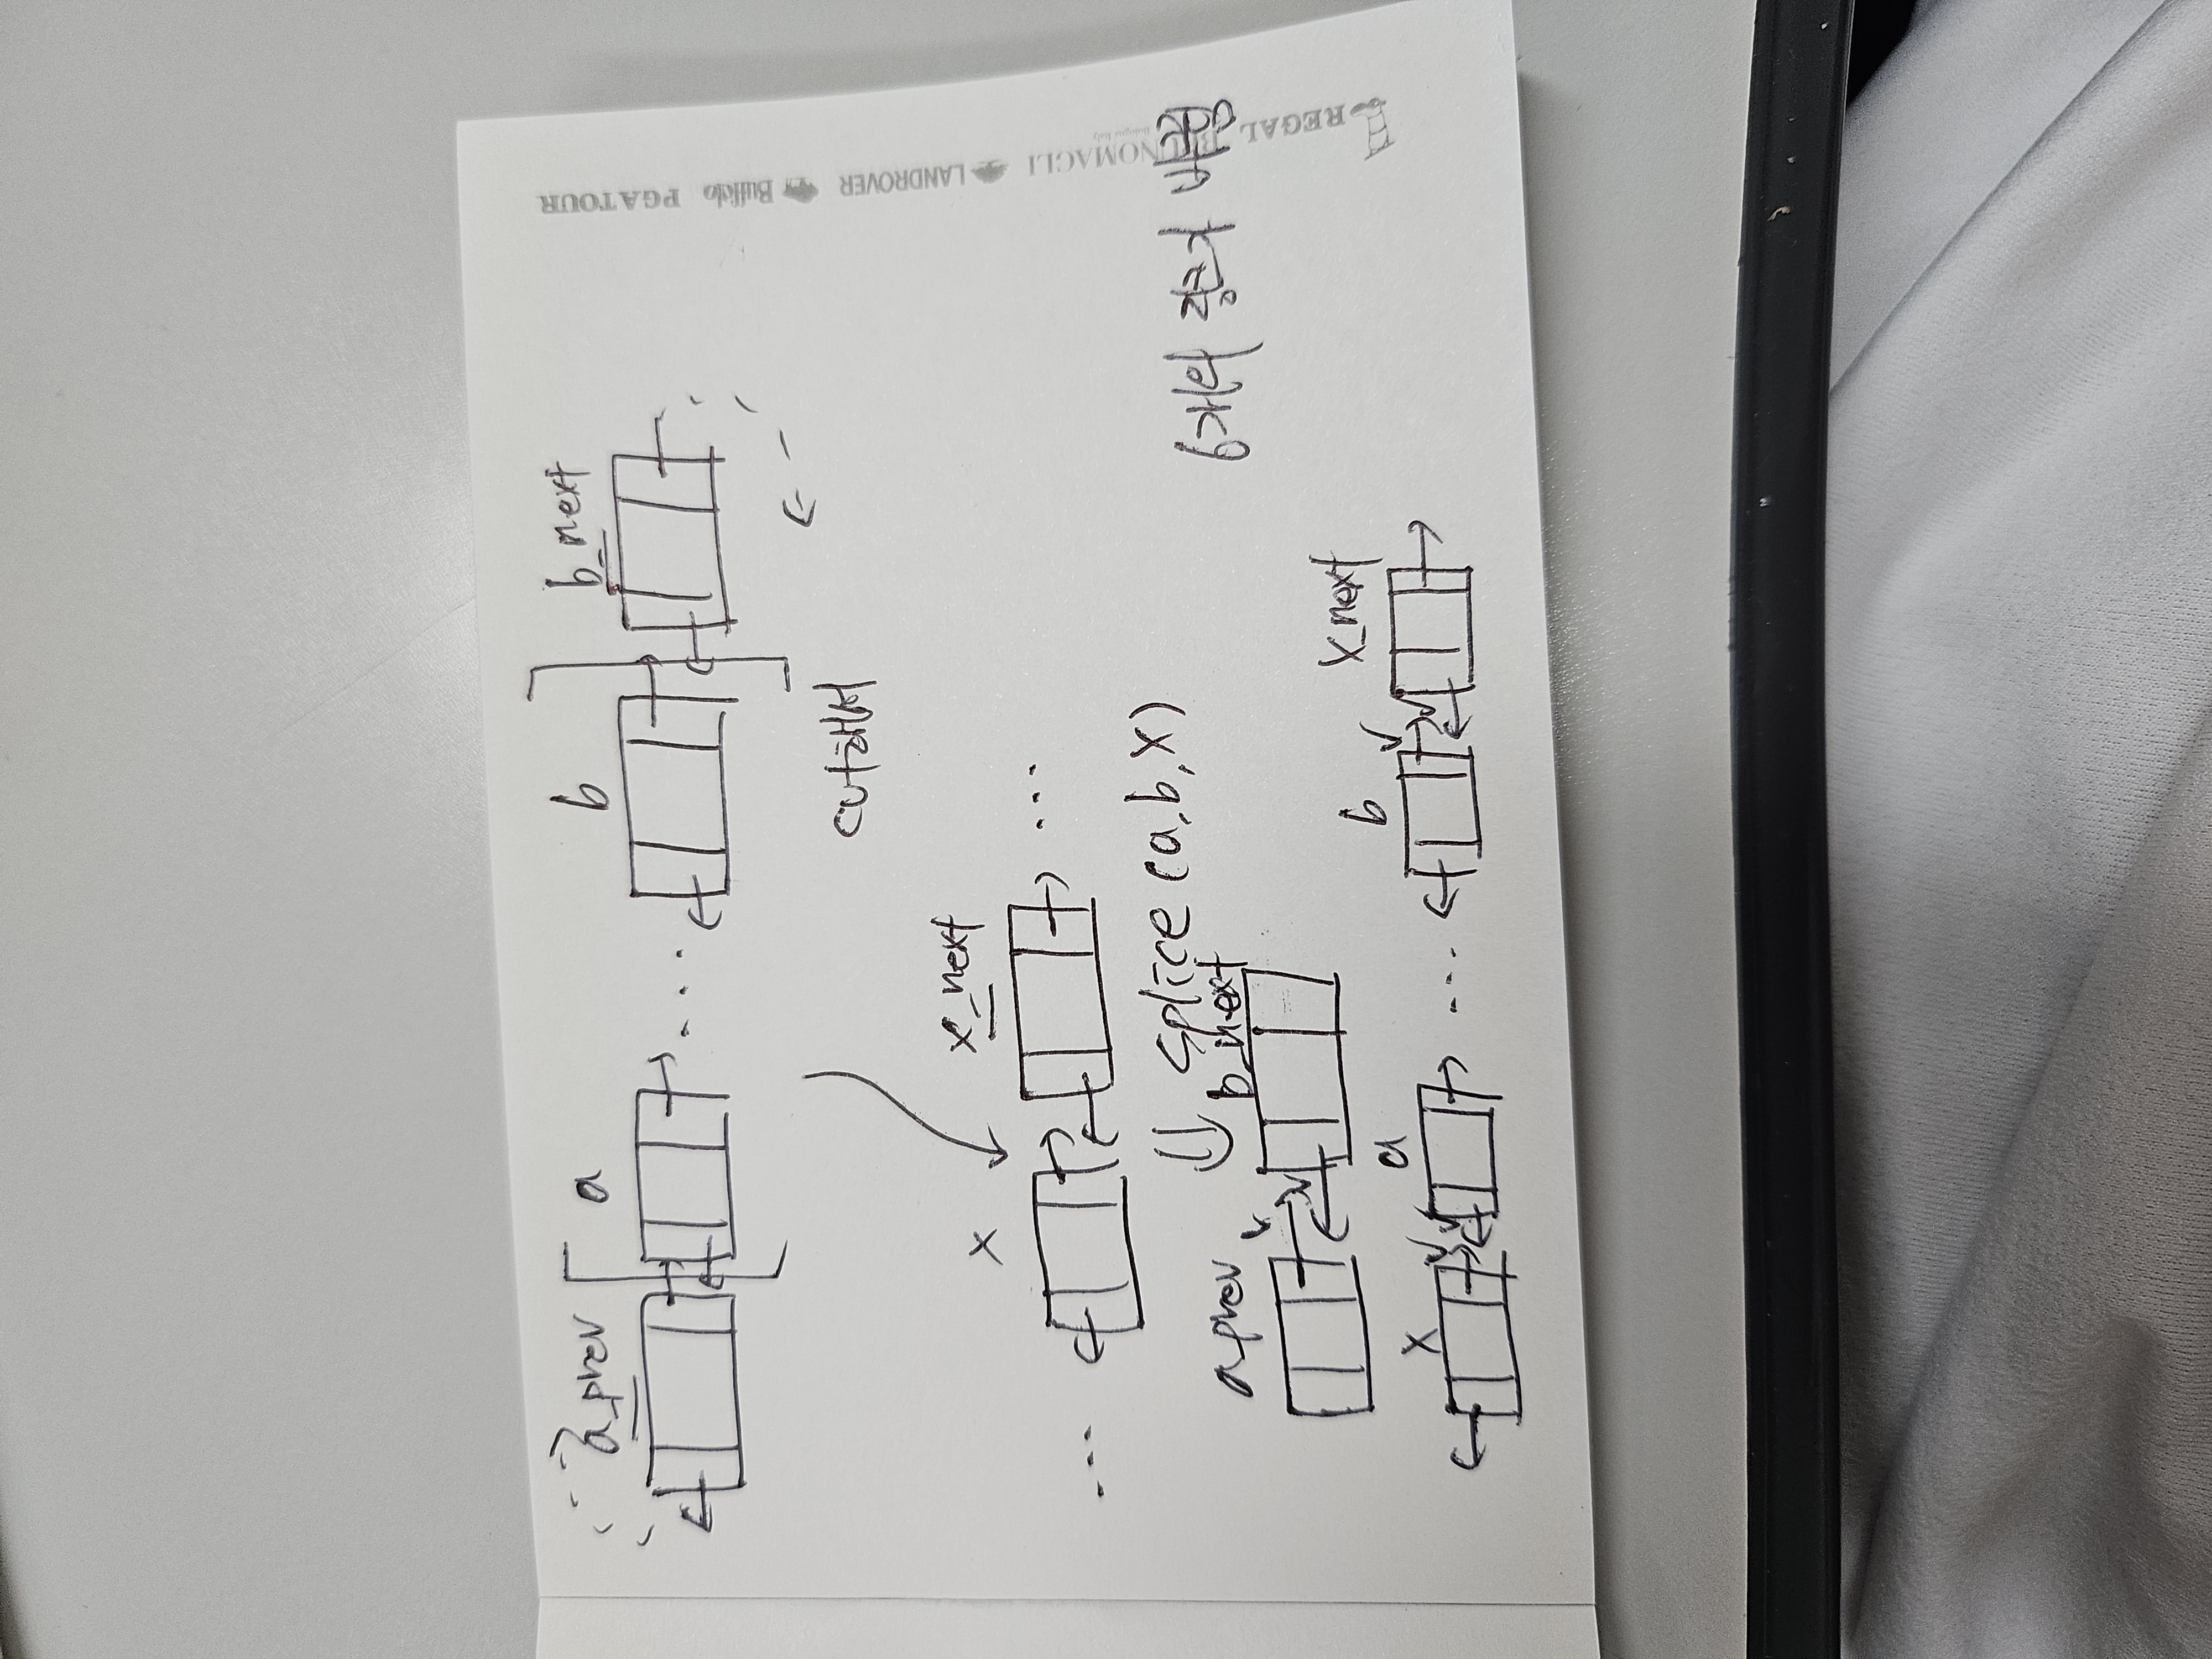 a_prev a b b_next
cut해서
x x_next
splice (a, b, x)
a_prev b_next
6개의 링크가 바뀜
x a b x_next
REGAL BRUNOMAGLI LANDROVER Buffalo PGATOUR